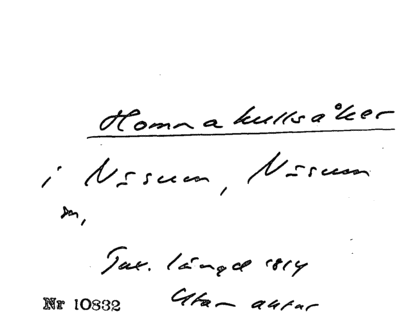 Homnakullsåker
i Näsum, Näsum
sn,
Tax. längd 1814
Utan antar
Nr 10832